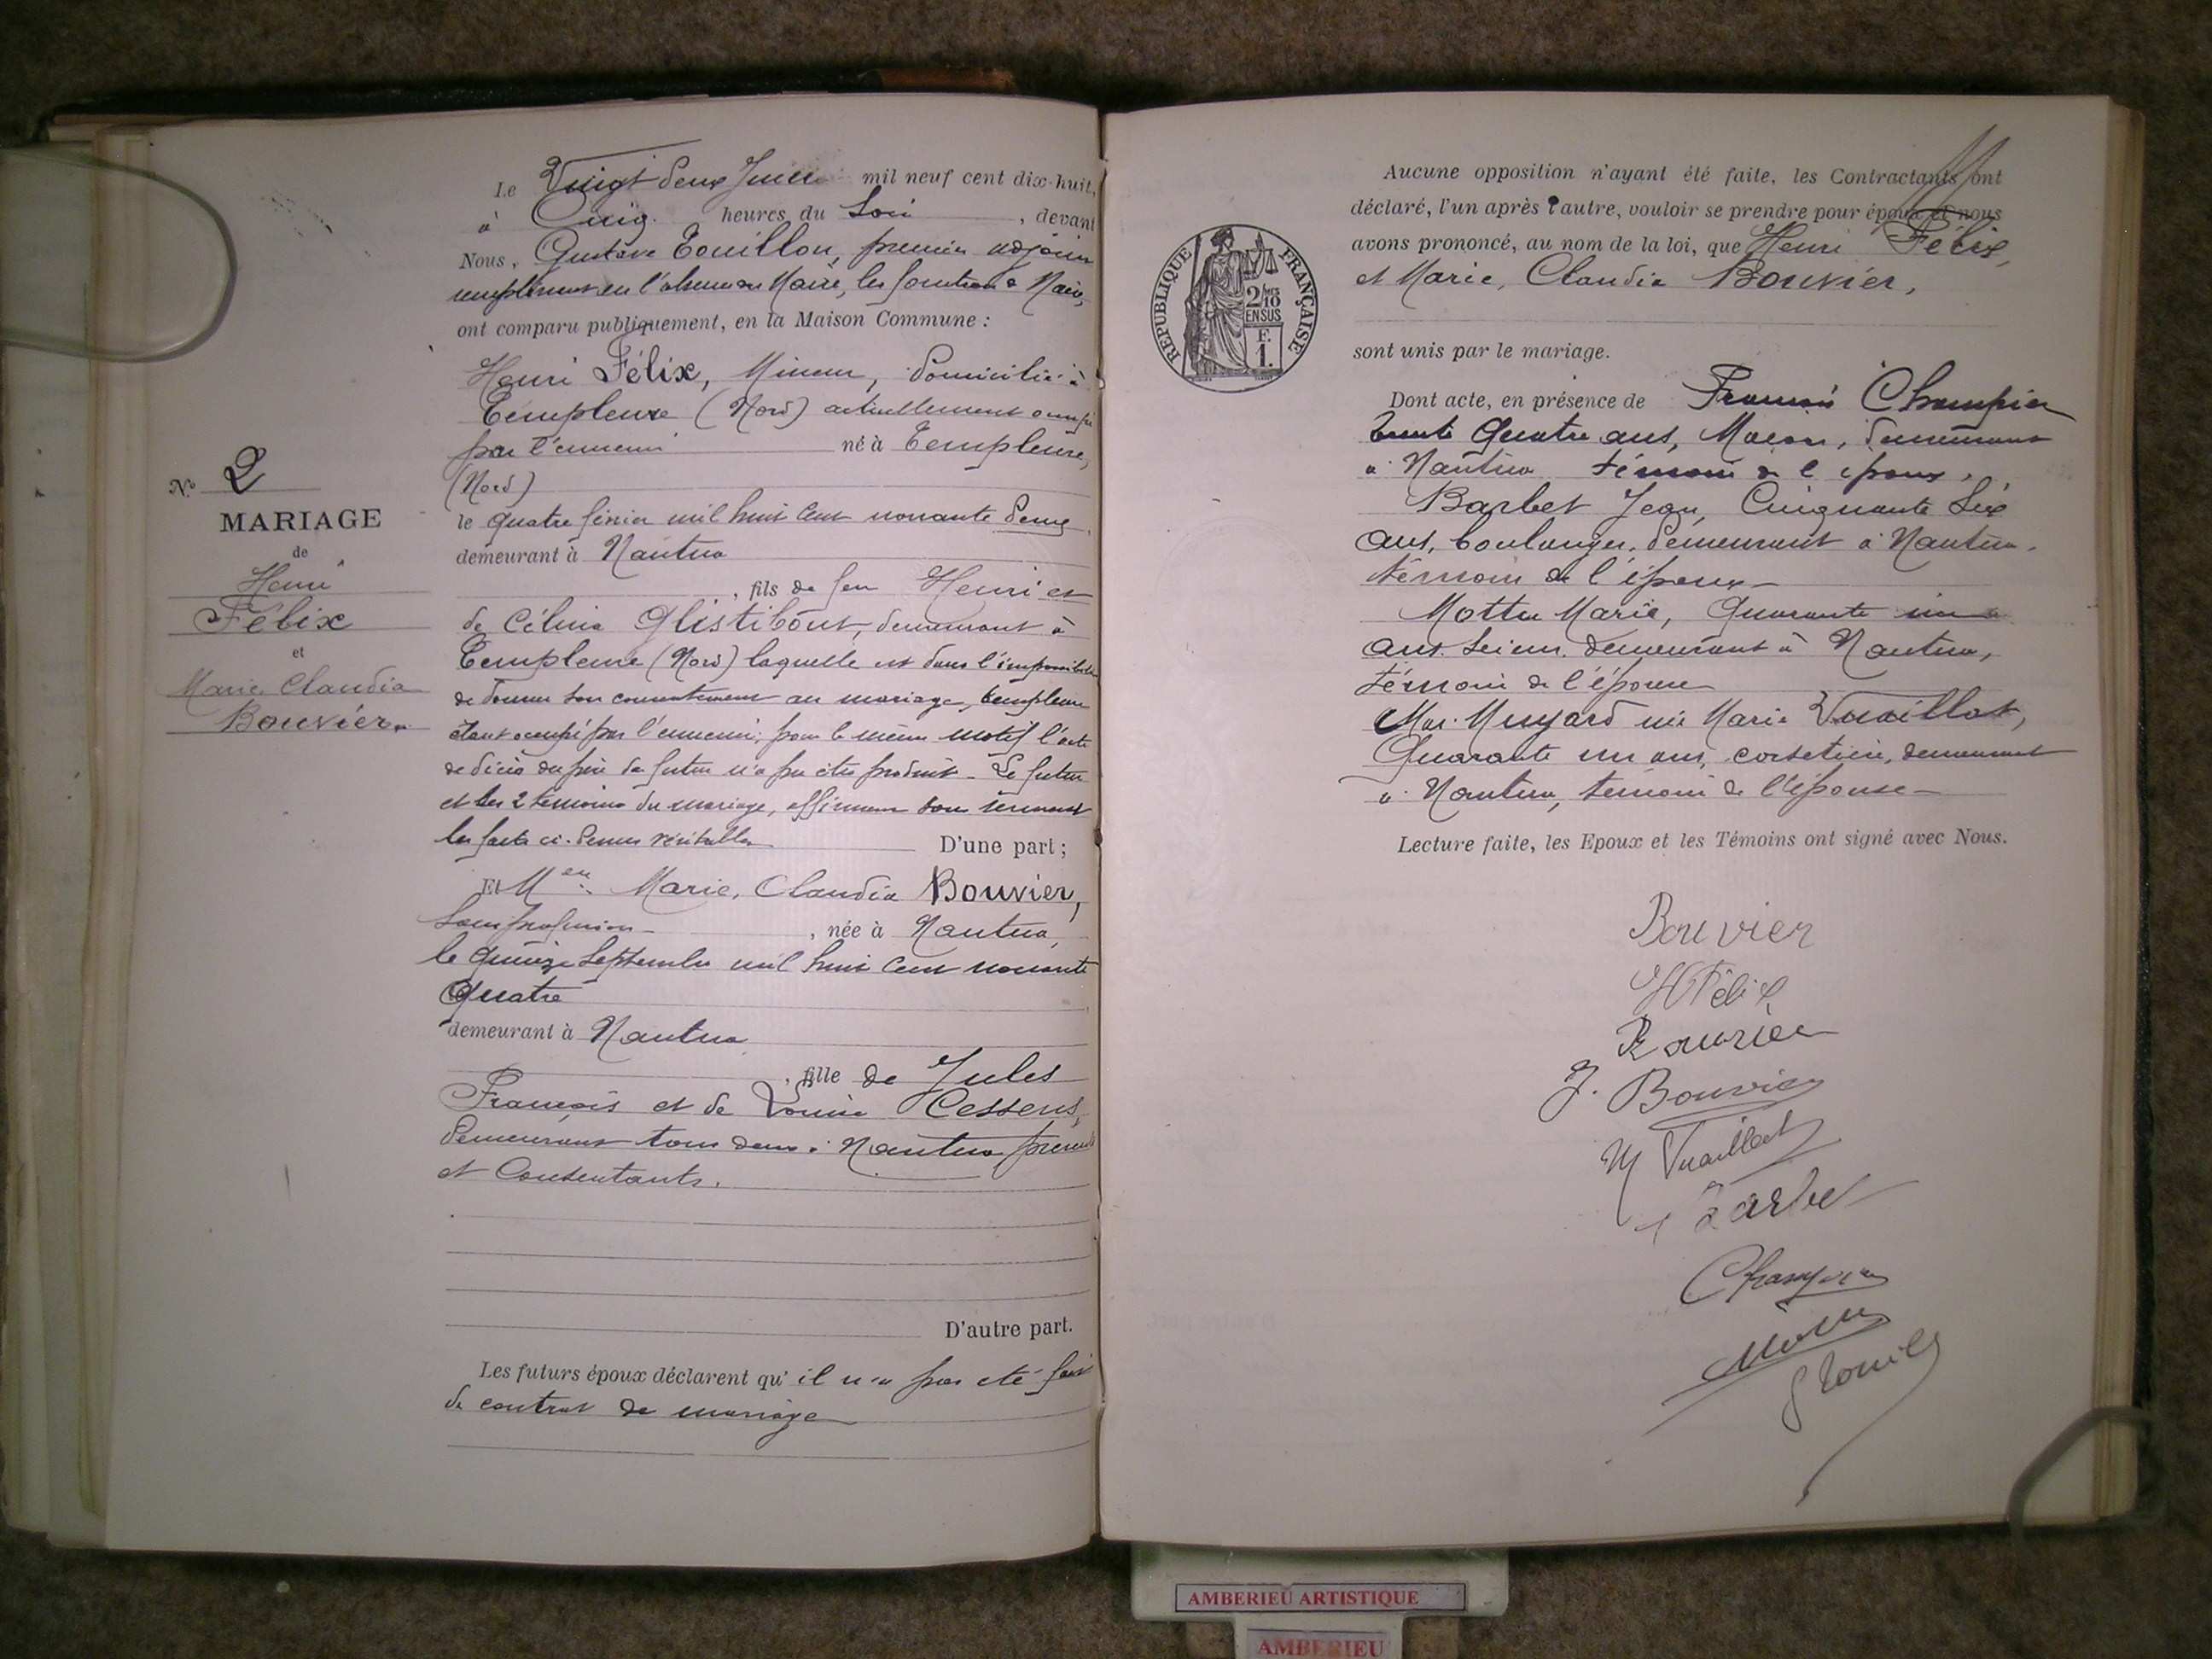 Le Vingt deux Juin mil neuf cent dix-huit,
à Cinq heures du Soir, devant
Nous, Gustave Touillon, premier adjoint
remplissant en l'absence du Maire, les fonctions de Maire,
ont comparu publiquement, en la Maison Commune :
Henri Félix, Mineur, domicilié à
Templeuve (Nord) actuellement occupé
par l'ennemi né à Templeuve,
(Nord)
le quatre février mil huit cent nonante deux
demeurant à Nantua
, fils de feu Henri et
de Célina Glistibout, demeurant à
Templeuve (Nord) laquelle est dans l'impossibilité
de donner son consentement au mariage, Templeuve
étant occupé par l'ennemi; pour le même motif l'acte
de décès du père du futur n'a pu être produit - Le futur
et les 2 témoins du mariage, affirment sous serment
les faits ci-dessus véritables D'une part ;
Et Melle Marie, Claudia Bouvier,
Sans profession , née à Nantua,
le quinze Septembre mil huit cent nonante
Quatre
demeurant à Nantua
, fille de Jules
François et de Louise Cessens,
demeurant tous deux à Nantua présents
et Consentants.
D'autre part.
Les futurs époux déclarent qu'il n'a pas été fait
de contrat de mariage
No 2
MARIAGE
de
Henri
Félix
et
Marie Claudia
Bouvier
Aucune opposition n'ayant été faite, les Contractants ont
déclaré, l'un après l'autre, vouloir se prendre pour époux et nous
avons prononcé, au nom de la loi, que Henri Félix,
et Marie, Claudia Bouvier,
sont unis par le mariage.
RÉPUBLIQUE FRANÇAISE
2/10
EN SUS
F.
1.
Dont acte, en présence de François Champier
trente Quatre ans, Maçon, demeurant
à Nantua témoin de l'époux.
Barbet Jean, Cinquante Six
ans, boulanger, demeurant à Nantua.
témoin de l'époux -
Mottu Marie, Quarante
ans demeurant à Nantua,
témoin de l'épouse
Muyard née Marie Vuaillat,
Quarante un ans, corsetière, demeurant
à Nantua, témoin de l'épouse -
Lecture faite, les Epoux et les Témoins ont signé avec Nous.
Bouvier
H Félix
Bouvier
J. Bouvier
M Vuaillat
Barbet
AMBERIEU ARTISTIQUE
AMBERIEU